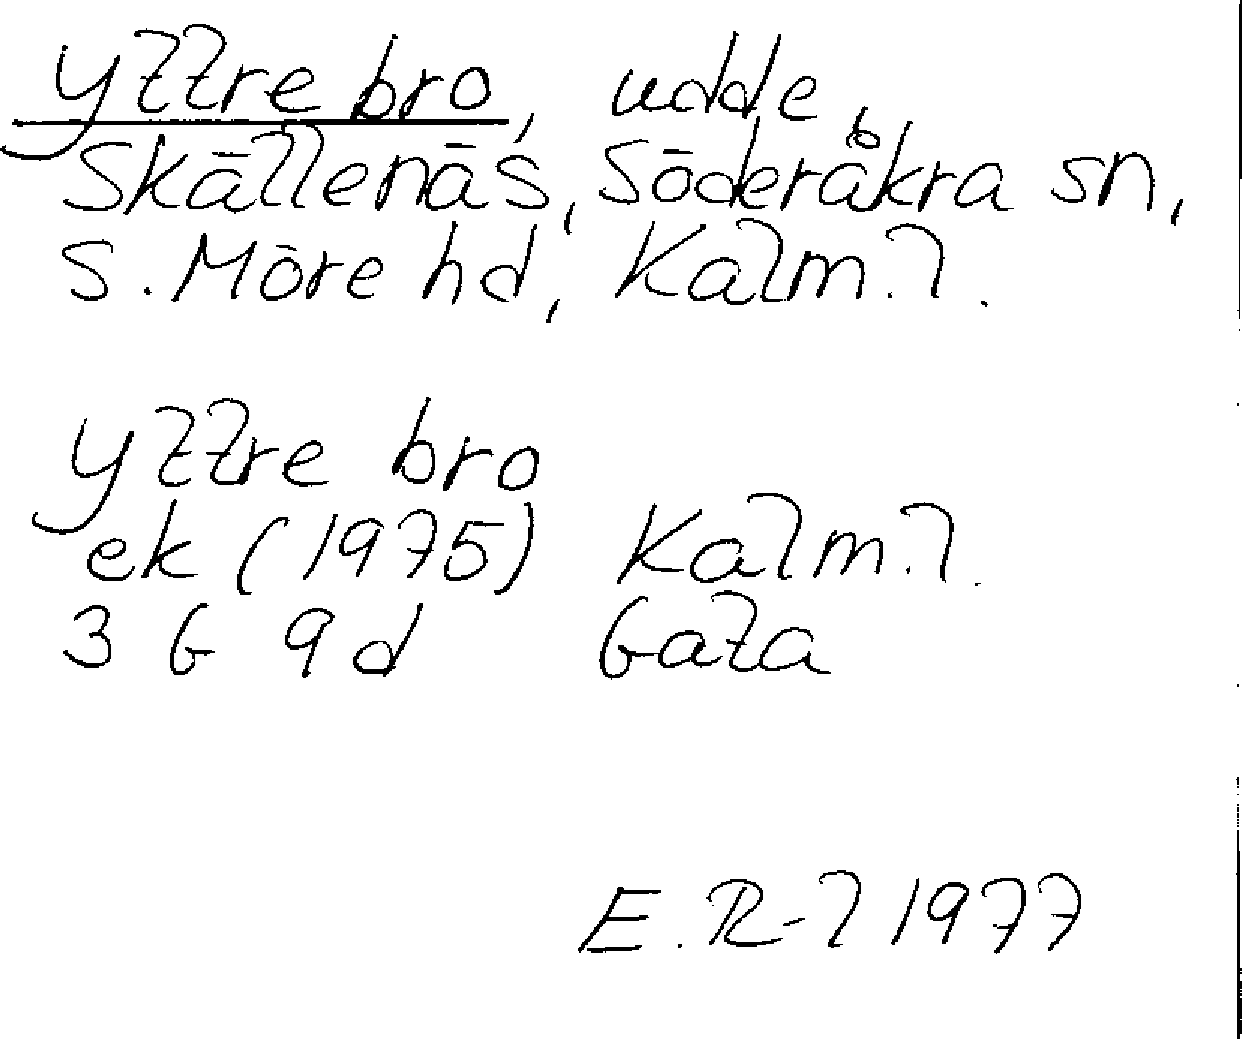 Yttre bro, udde,
Skällenäs, Söderåkra sn,
S. Möre hd, Kalm. l.
Yttre bro
ek (1975) Kalm. l.
3 G 9 d Gata
E. R-l 1977